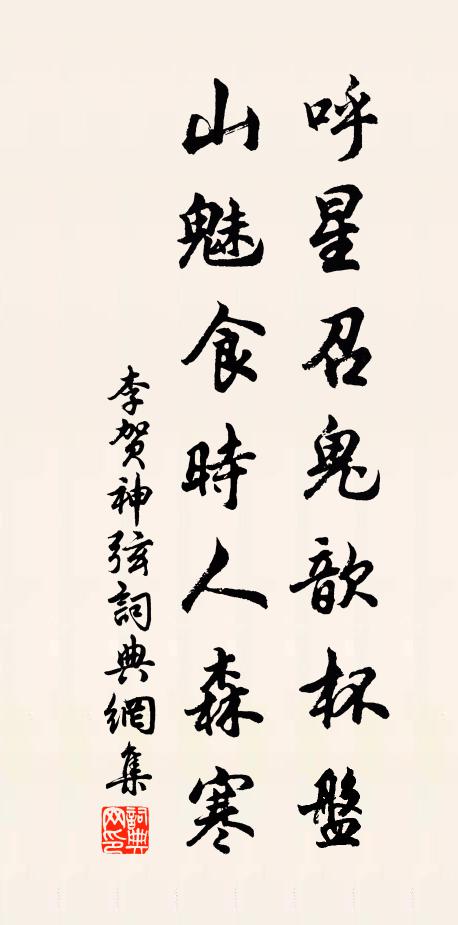 呼星召鬼歆杯盤
山魅食時人森寒
李贺神弦詞典網集
詞典网印